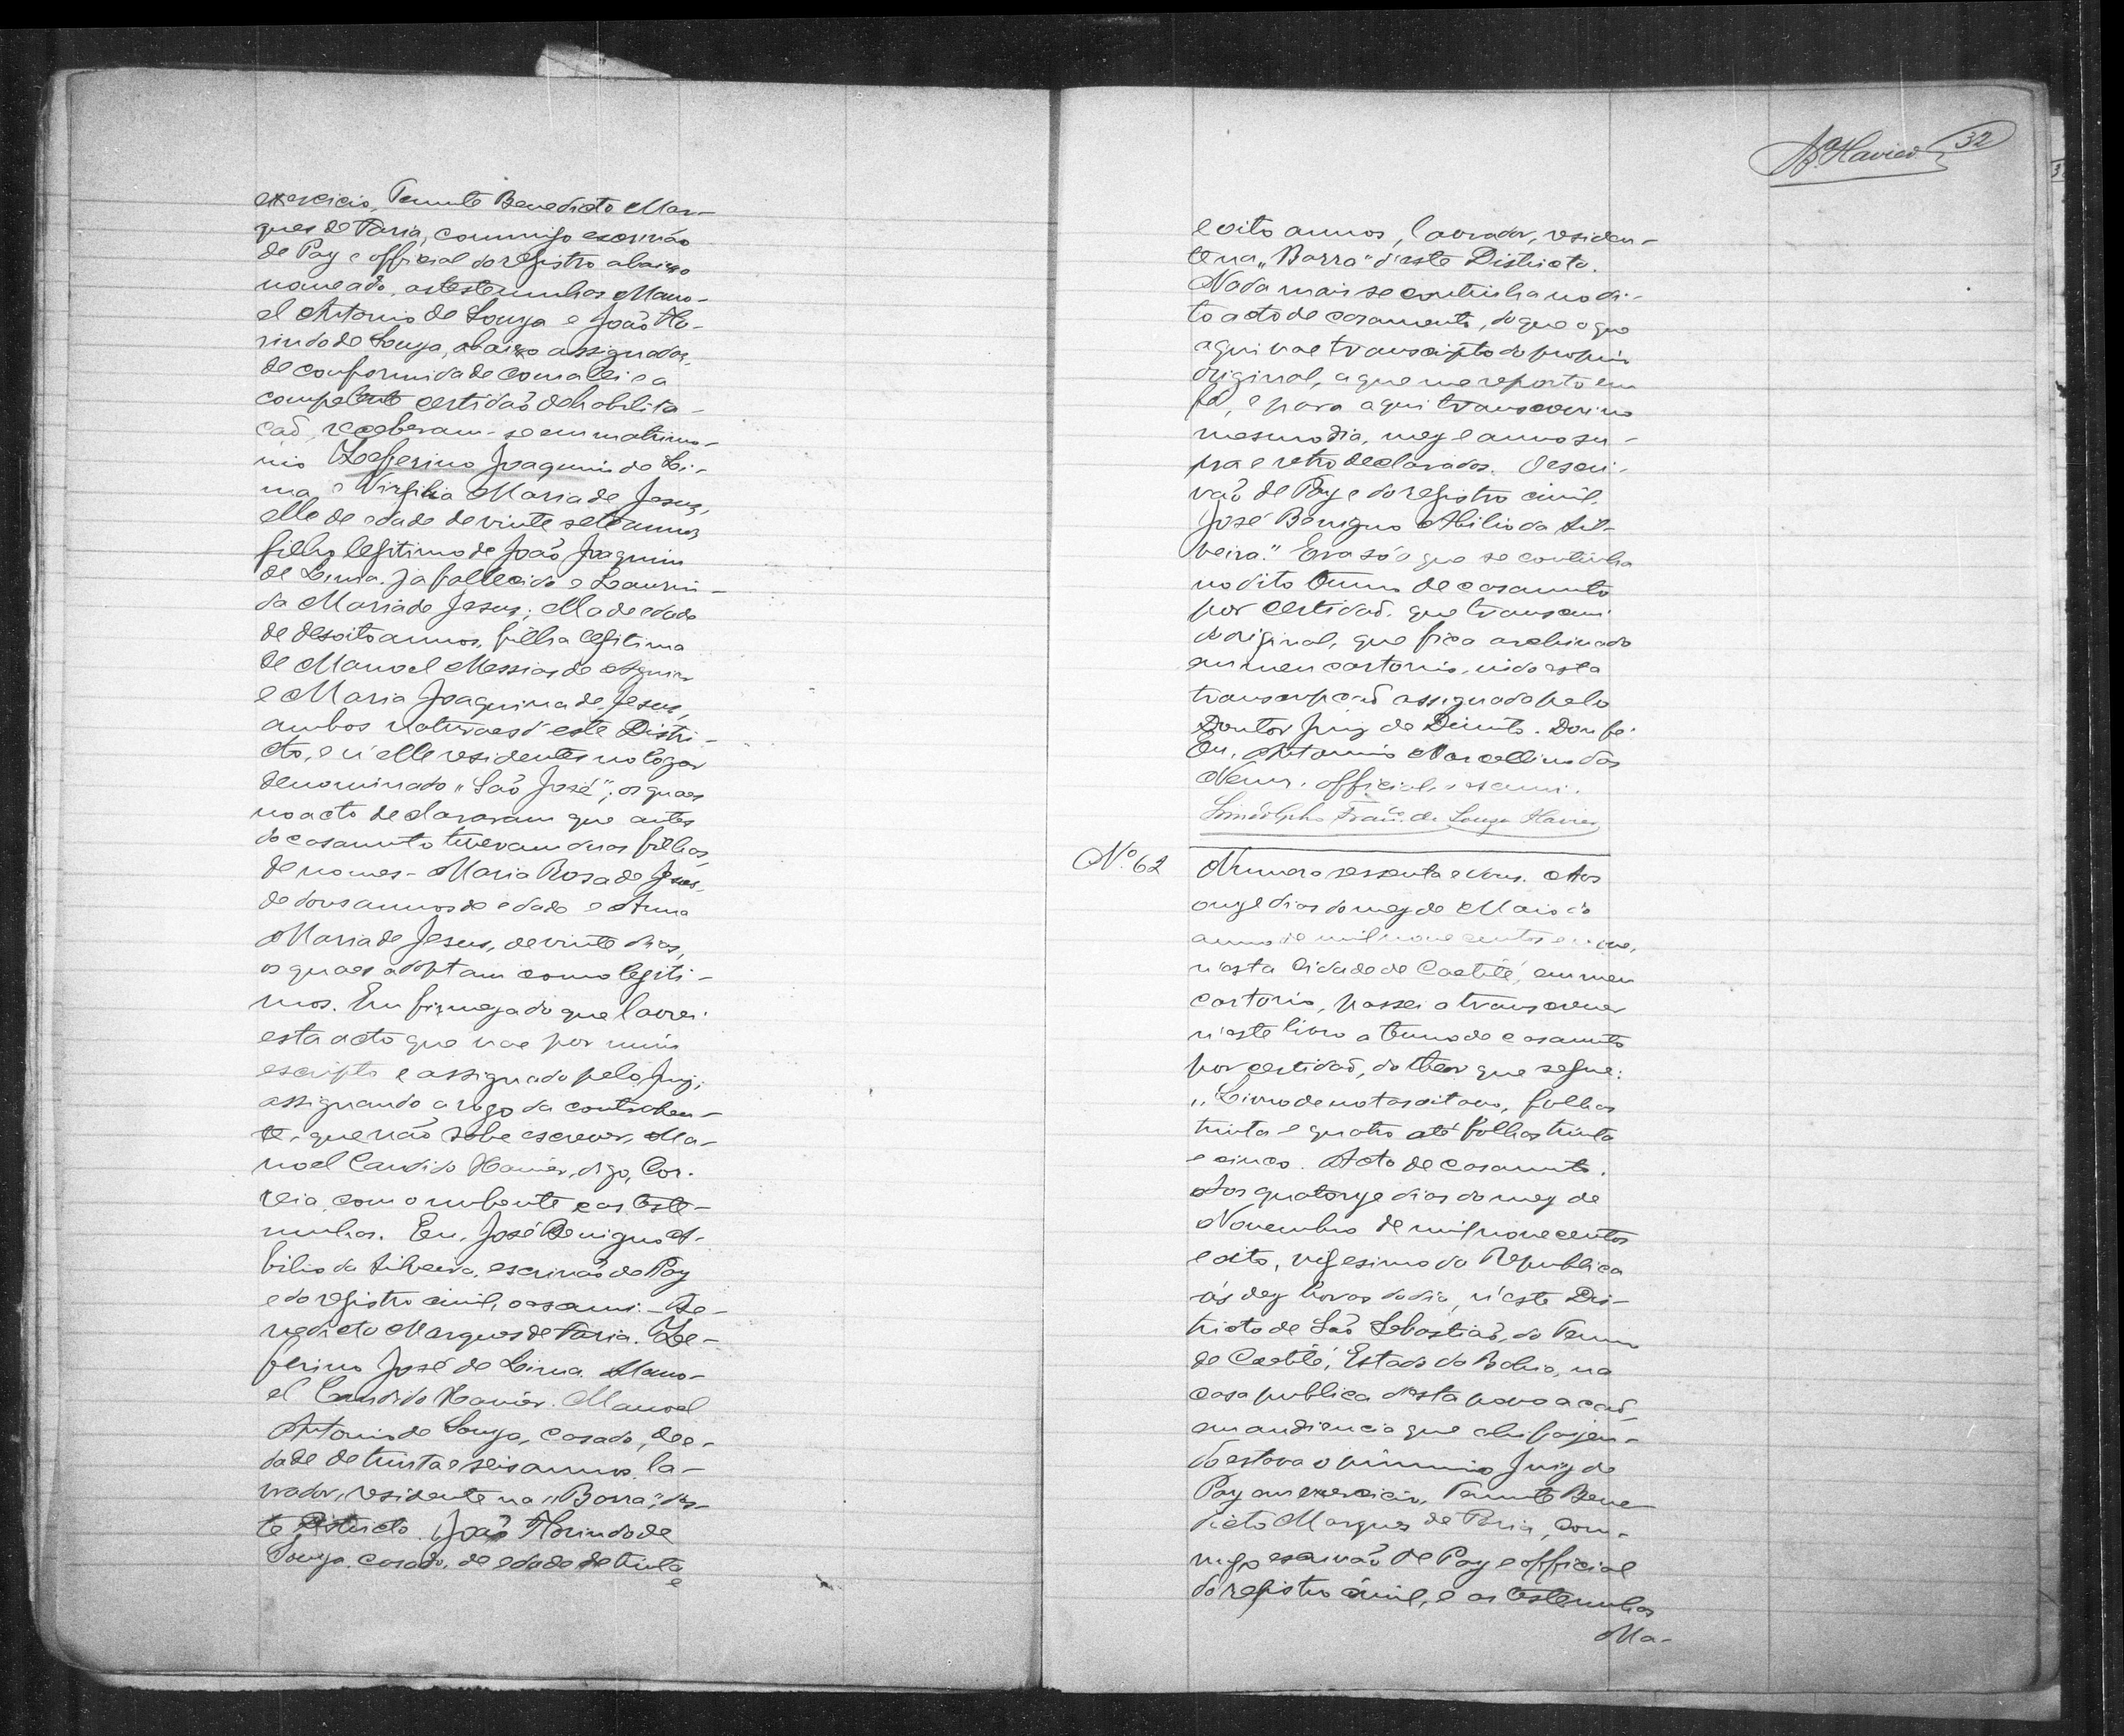 exercicio, Tenente Benedicto Mar-
ques de Faria, commigo escrivão
de Paz e official do registro abaixo
nomeado, as testemunhas Mano-
el Antonio de Souza e João Flo-
rindo de Souza, abaixo assignados,
de conformidade com a lei e a
competente certidaõ de habilita-
caõ, receberam-se em matrimo-
nio Zeferino Joaquim de Li-
ma e Virgilia Maria de Jesus,
elle de edade de vinte sete annos
filho legitimo de João Joaquim
de Lima já fallecido e Laurin-
da Maria de Jesus; ella de edade
de desoito annos, filha legitima
de Manoel Messias de Aguiar
e Maria Joaquina de Jesus,
ambos naturaes d'este Distri-
cto, e n'elle residentes no logar
denominado "Saõ José"; os quaes
no acto declararam que antes
do casamento tiveram duas filhas,
de nomes - Maria Rosa de Jesus,
de dous annos de edade e Anna
Maria de Jesus, de vinte dias,
os quaes adoptam como legiti-
mos. Em firmeza do que lavrei
esta acto que vae por mim
escripto e assignado pelo Juiz;
assignando a rogo da contrahen-
te, que não sabe escrever, Ma-
noel Candido Xavier, digo, Cor-
reia, com o nubente e as teste-
munhas. Eu, José Benigno A-
bilio da Silveira, escrivão de Paz
e do registro civil, o escrevi. - Be-
nedicto Marques de Faria. Ze-
ferino José de Lima. Mano-
el Candido Xavier. Manoel
Antonio de Souza, casado, de e-
dade de trinta e seis annos, la-
vrador, residente na "Barra", des-
te Districto. João Florindo de
Souza, casado, de edade de trinta
e
Xavier 32
e oito annos, lavrador, residen-
te na "Barra" d'este Districto.
Nada mais se continha no di-
to acto de casamento, do que o que
aqui vae transcripto do proprio
original, a que me reporto em
fé, e para aqui transcrevi no
mesmo dia, mez e anno su-
pra e retro declarados. O escri-
vaõ de Paz e do registro civil,
José Benigno Abilio da Sil-
veira." Era só o que se continha
no dito termo de casamento
por certidaõ, que transcrevi
do original, que fica archivado
em meu cartorio, indo esta
transcripçaõ assignada pelo
Doutor Juiz de Direito. Dou fé.
Eu, Antonio Marcellino das
Neves, official, o escrevi.
Lindolpho Franco de Souza Xavier
Nº 62
Numero sessenta e dous. Aos
onze dias do mez de Maio do
anno de mil nove centos e nove,
n'esta Cidade de Caetité, em meu
cartorio, passei a transcrever
n'este livro o termo de casamento
por certidaõ, do theor que segue:
"Livro de notas oitavo, folhas
trinta e quatro até folhas trinta
e cinco. Acto de casamento.
Aos quatorze dias do mez de
Novembro de mil nove centos
e oito, vigesimo da Republica
ás dez horas do dia, n'este Dis-
tricto de Saõ Sebastiaõ, do Termo
de Caetité, Estado da Bahia, na
casa publica desta povoacaõ,
em audiencia que ahi fazen-
do estava o primeiro Juiz de
Paz em exercicio, Tenente Bene-
dicto Marques de Faria, com-
migo escrivaõ de Paz e official
do registro civil, e as testemunhas
Ma-